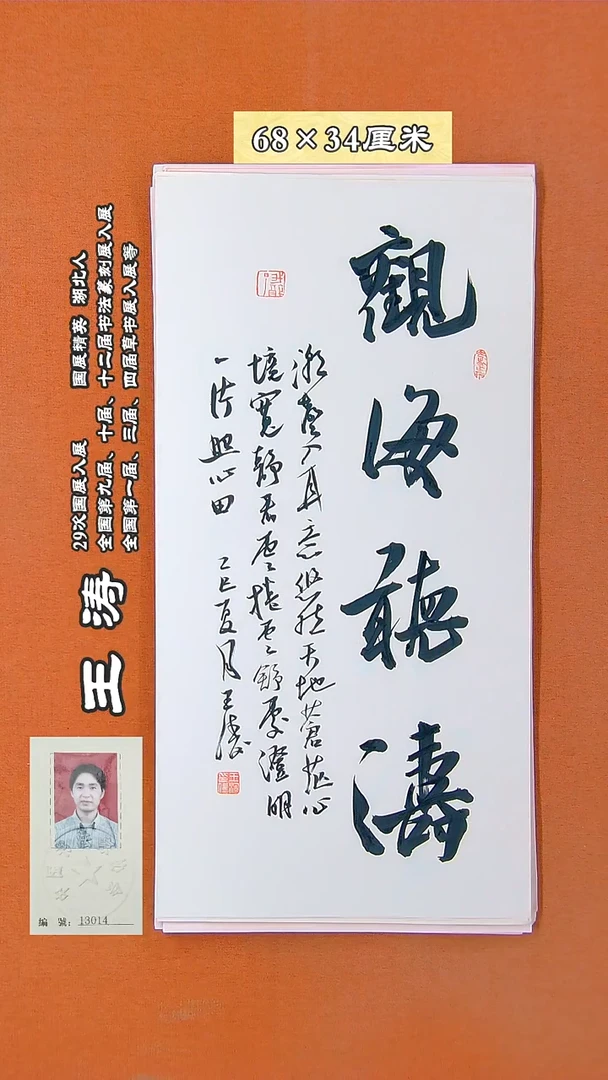 68×34厘米
觀海聽濤
潮聲入耳意悠然天地蒼茫心
境寬靜看雲捲雲舒處澄明
一片照心田 乙巳夏月王濤
王涛
29次国展入展 国展精英 湖北人
全国第九届、十届、十二届书法篆刻展入展
全国第一届、三届、四届草书展入展等
編號：13014